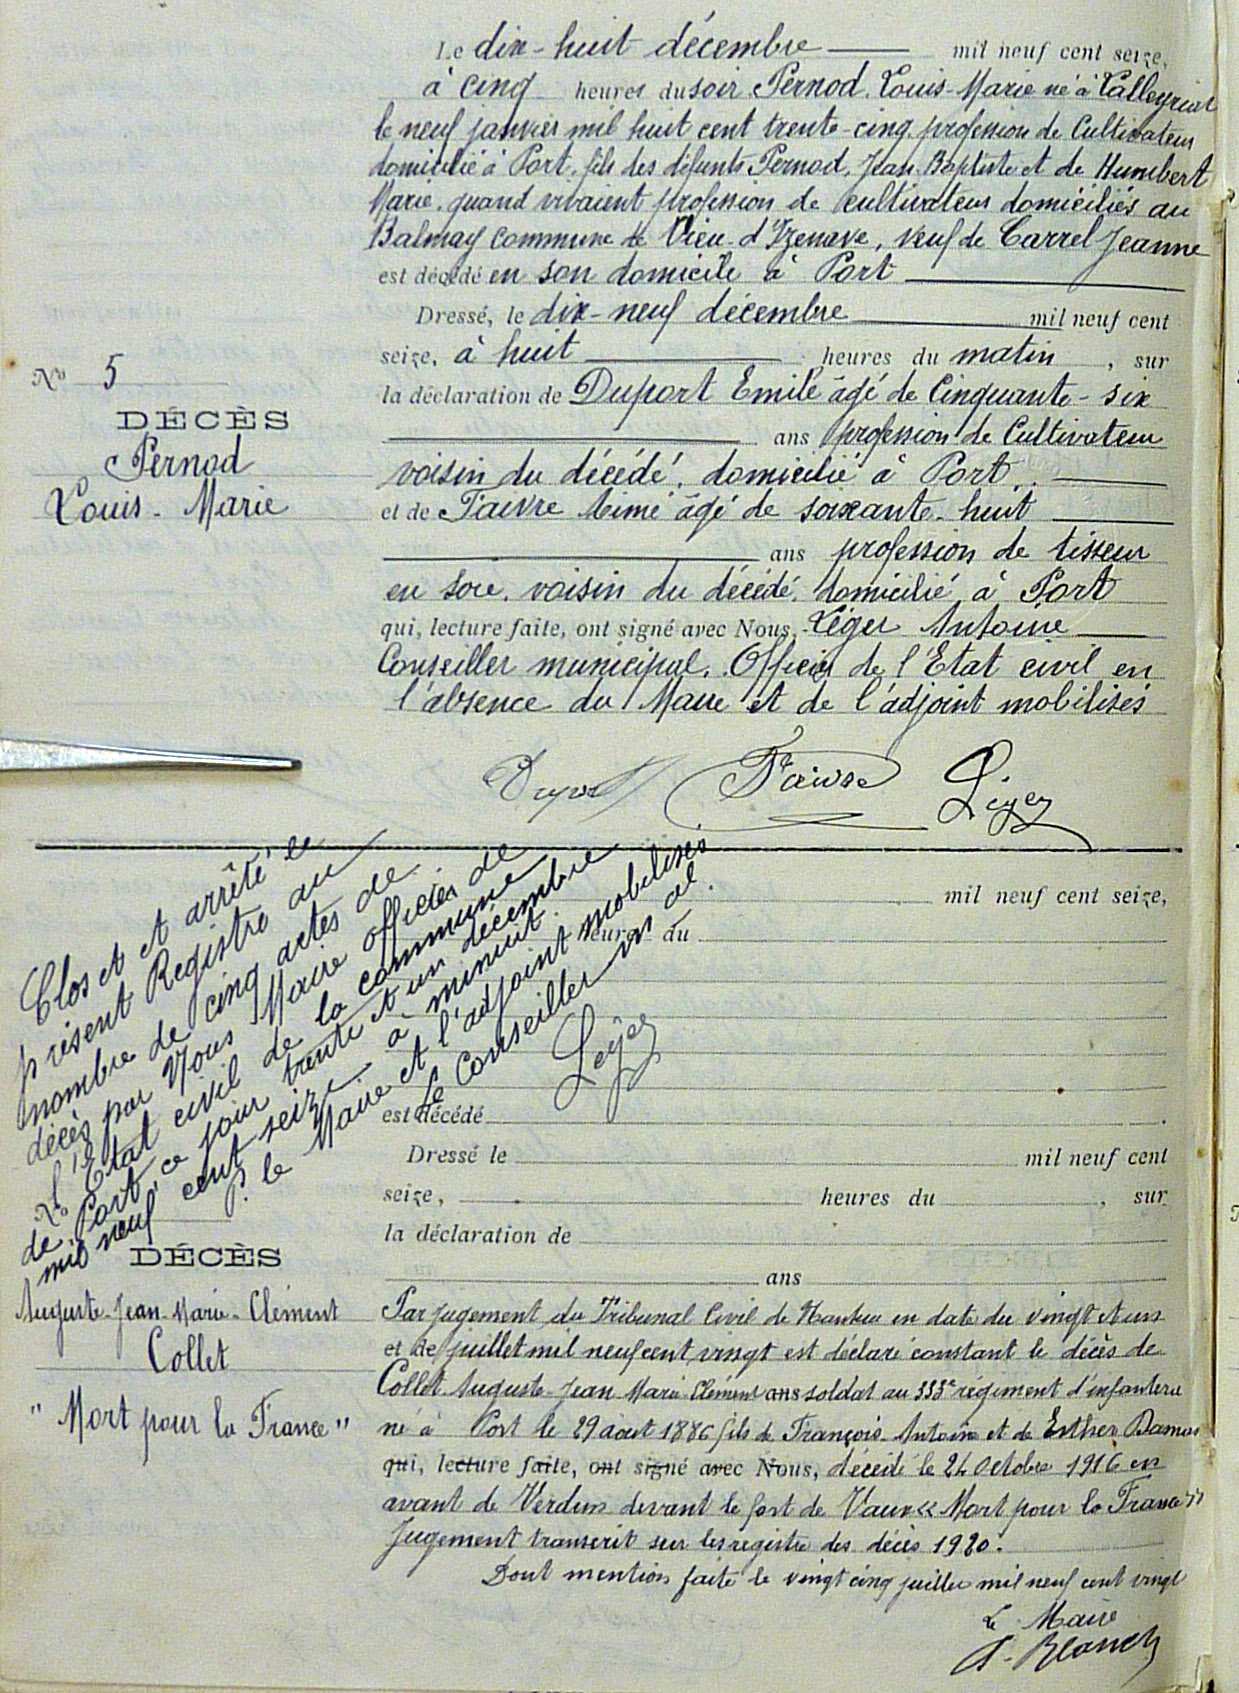 Le dix-huit décembre mil neuf cent seize,
à cinq heures du soir Pernod, Louis-Marie né à Valleyriat
le neuf janvier mil huit cent trente-cinq, profession de Cultivateur
domicilié à Port, fils des défunts Pernod, Jean-Baptiste et de Humbert
Marie, quand vivaient profession de cultivateurs domiciliés au
Balmay commune de Vieu-d'Izenave, veuf de Carrel Jeanne
est décédé en son domicile à Port
Dressé, le dix-neuf décembre mil neuf cent
seize, à huit heures du matin, sur
la déclaration de Duport Emile âgé de Cinquante-six
ans profession de Cultivateur
voisin du décédé, domicilié à Port,
et de Faivre Aimé âgé de soixante-huit
ans profession de tisseur
en soie, voisin du décédé, domicilié à Port
qui, lecture faite, ont signé avec Nous, Léger Antoine
Conseiller municipal, Officier de l'Etat civil en
l'absence du Maire et de l'adjoint mobilisés
No 5
DÉCÈS
Pernod
Louis-Marie
Duport Faivre Léger
Clos et et arrêté le
présent Registre au
nombre de cinq actes de
décès par Nous Maire officier de
l'Etat civil de la commune
de Port, ce jour trente et un décembre
mil neuf cent seize à minuit.
P. le Maire et l'adjoint mobilisés
Le Conseiller m al.
Léger
mil neuf cent seize,
heures du
est décédé
Dressé le mil neuf cent
seize, heures du , sur
la déclaration de
ans
No
DÉCÈS
Auguste-Jean-Marie-Clément
Collet
"Mort pour la France"
Par jugement du Tribunal Civil de Nantua en date du vingt et un
et de juillet mil neuf cent vingt est déclaré constant le décès de
Collet Auguste-Jean-Marie-Clément ans soldat au 333e régiment d'infanterie
né à Port le 29 août 1886 fils de François-Antoine et de Esther Damas
qui, lecture faite, ont signé avec Nous, décédé le 24 octobre 1916 en
avant de Verdun devant le fort de Vaux «Mort pour la France»
Jugement transcrit sur les registre des décès 1920.
Dont mention faite le vingt cinq juillet mil neuf cent vingt
Le Maire